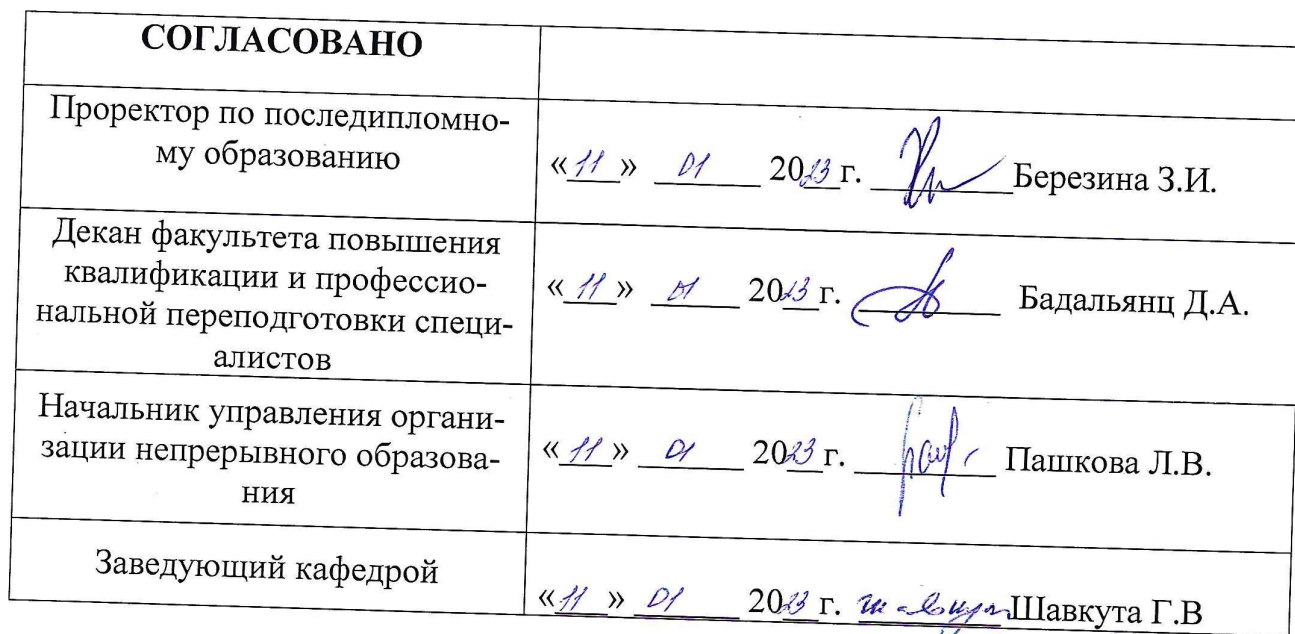 СОГЛАСОВАНО
Проректор по последипломно-
му образованию
«11» 01 2023 г. Березина З.И.
Декан факультета повышения
квалификации и профессио-
нальной переподготовки специ-
алистов
«11» 01 2023 г. Бадальянц Д.А.
Начальник управления органи-
зации непрерывного образова-
ния
«11» 01 2023 г. Пашкова Л.В.
Заведующий кафедрой
«11» 01 2023 г. Шавкута Г.В